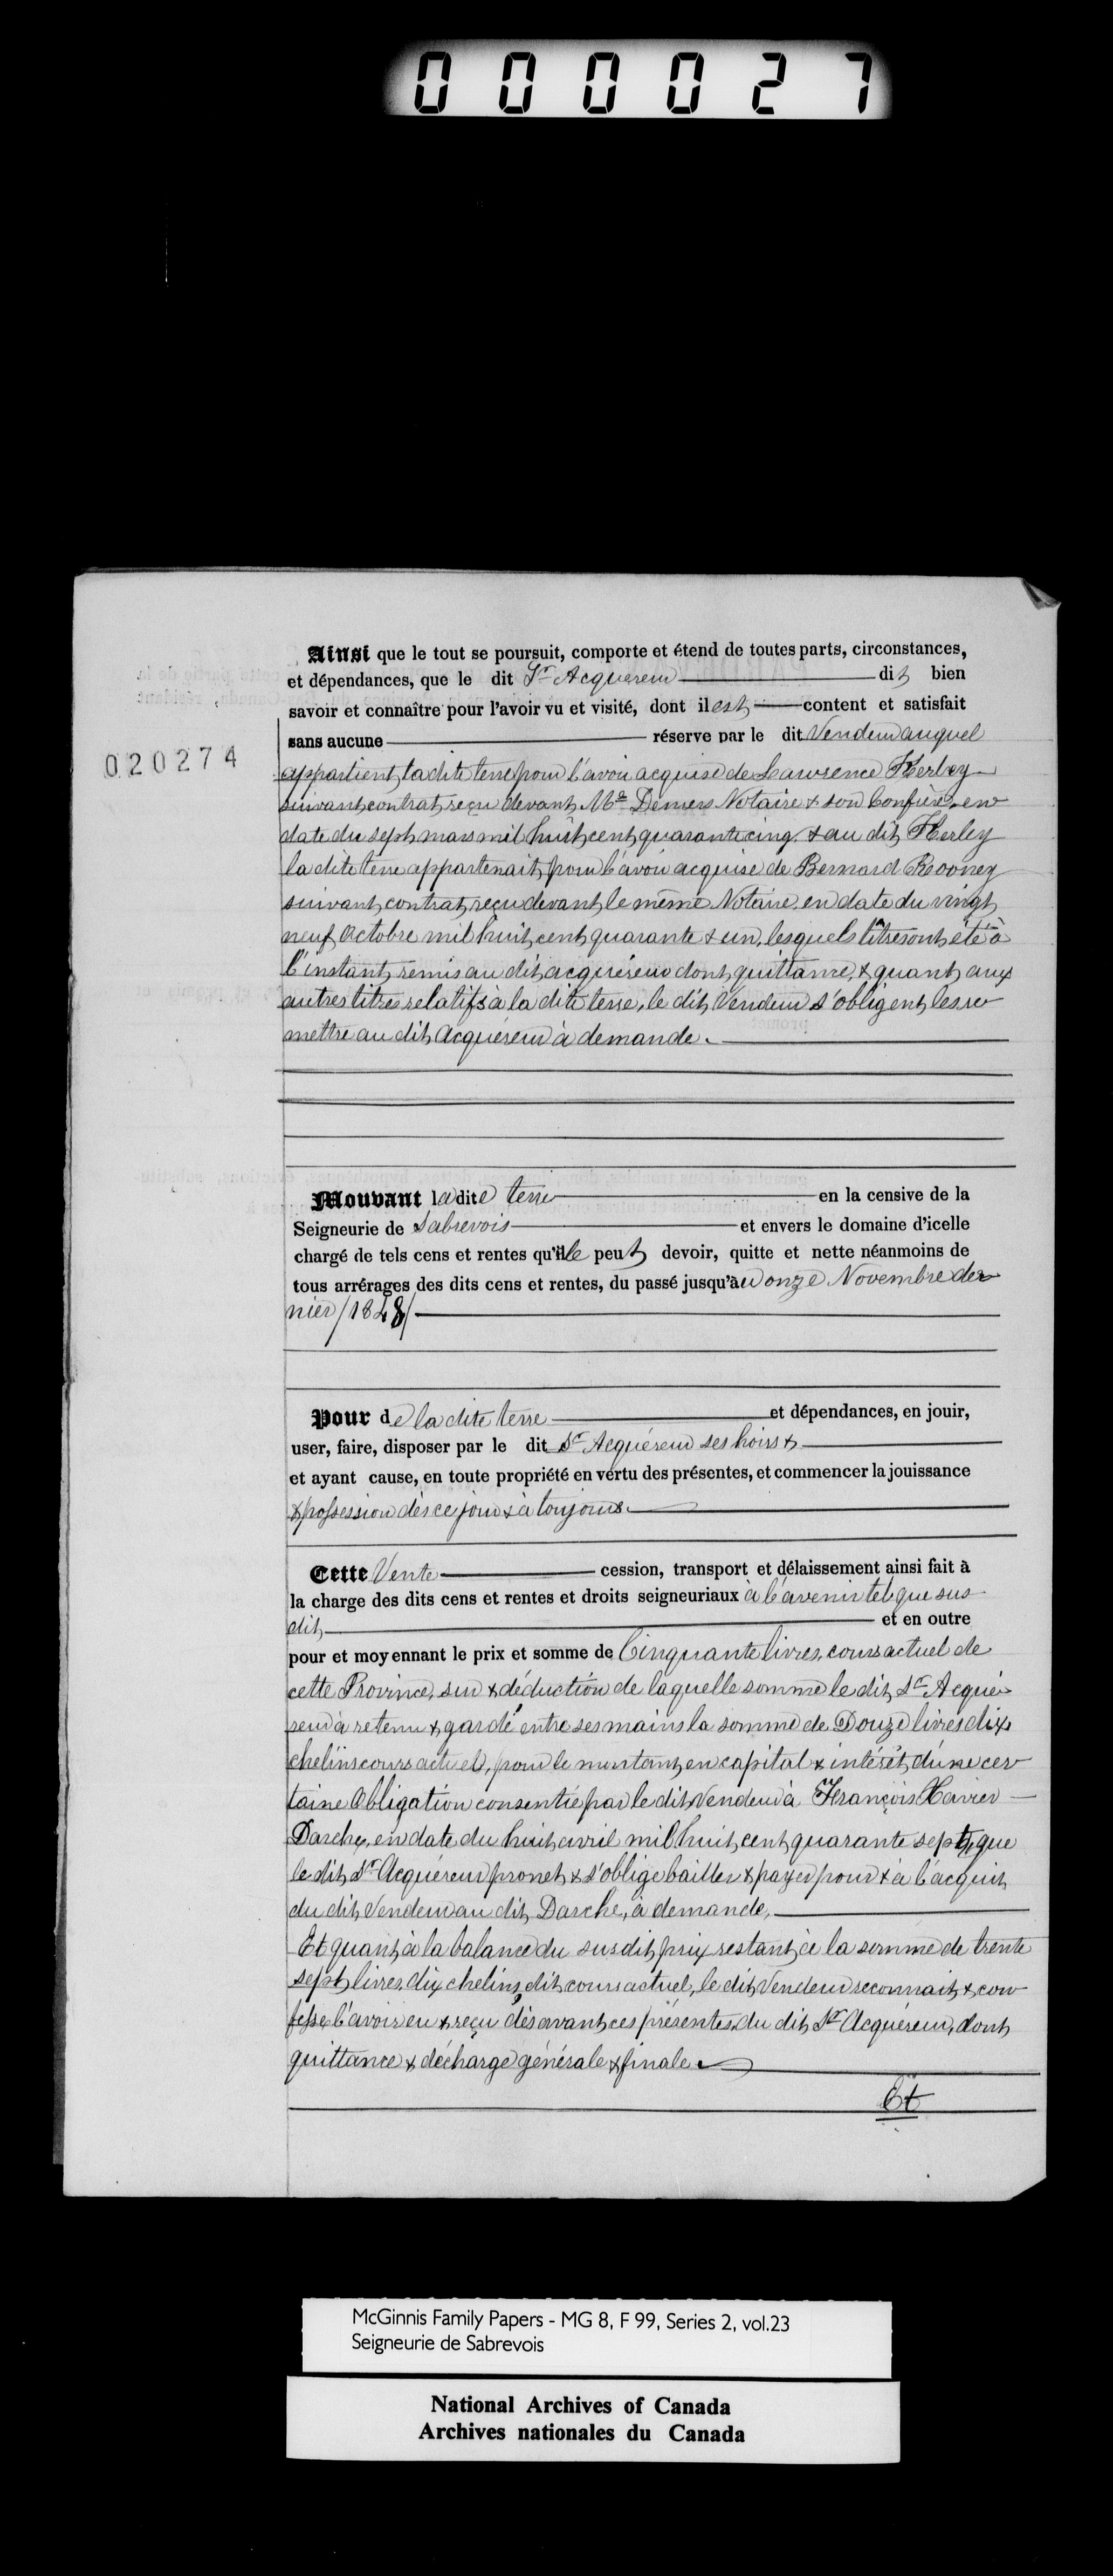 000027
Ainsi que le tout se poursuit, comporte et étend de toutes parts, circonstances,
et dépendances, que le dit Sr. Acquéreur dit bien
savoir et connaître pour l'avoir vu et visité, dont il est content et satisfait
sans aucune réserve par le dit Vendeur auquel
020274
appartient la dite terre pour l'avoir acquise de Lawrence Kerley
suivant contrat reçu devant Me Demers Notaire & son Confrère en
date du sept mars mil huit cent quarante cinq. & au dit Kerley
la dite terre appartenait pour l'avoir acquise de Bernard Rooney
suivant contrat reçu devant le même Notaire en date du vingt
neuf Octobre mil huit cent quarante & un, lesquels titres ont été à
l'instant remis au dit acquéreur dont quittance, & quant aux
autres titres relatifs à la dite terre, le dit Vendeur s'obligent les re
mettre au dit Acquéreur à demande.
Mouvant la dite terre en la censive de la
Seigneurie de Sabrevois et envers le domaine d'icelle
chargé de tels cens et rentes qu'elle peut devoir, quitte et nette néanmoins de
tous arrérages des dits cens et rentes, du passé jusqu'au onze Novembre der
nier /1848/
Pour de la dite terre et dépendances, en jouir,
user, faire, disposer par le dit Sr Acquéreur ses hoirs &
et ayant cause, en toute propriété en vertu des présentes, et commencer la jouissance
& possession dès ce jour & à toujours.
Cette Vente cession, transport et délaissement ainsi fait à
la charge des dits cens et rentes et droits seigneuriaux à l'avenir tel que sus
dit et en outre
pour et moyennant le prix et somme de Cinquante livres, cours actuel de
cette Province, sur & déduction de laquelle somme le dit Sr Acqué
reur à retenu & gardé entre ses mains la somme de Douze livres dix
chelins cours actuel, pour le montant en capital & intérêt d'une cer
taine Obligation consentie par le dit Vendeur à François Xavier
Darche, en date du huit avril mil huit cent quarante sept, que
le dit Sr Acquéreur promet & s'oblige bailler & payer pour & à l'acquit
du dit Vendeur au dit Darche, à demande,
Et quant à la balance du susdit prix restant à la somme de trente
sept livres, dix chelins, dit cours actuel, le dit Vendeur reconnait & con
fesse l'avoir eu & reçu dès avant ces présentes du dit Sr Acquéreur, dont
quittance & décharge générale & finale.
Et
McGinnis Family Papers - MG 8, F 99, Series 2, vol.23
Seigneurie de Sabrevois
National Archives of Canada
Archives nationales du Canada